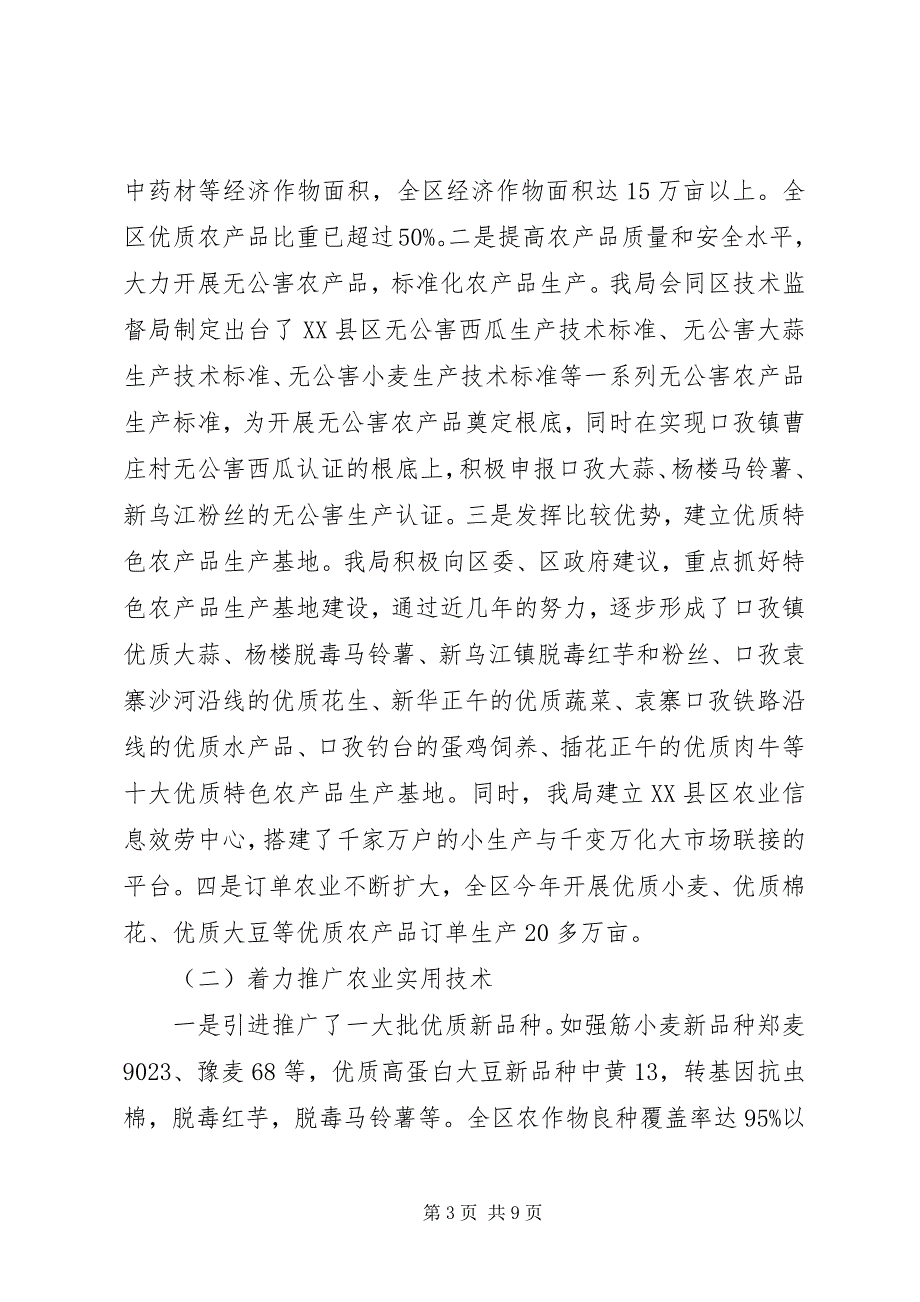 中药材等经济作物面积，全区经济作物面积达 15 万亩以上。全
区优质农产品比重已超过 50%。二是提高农产品质量和安全水平，
大力开展无公害农产品，标准化农产品生产。我局会同区技术监
督局制定出台了 XX 县区无公害西瓜生产技术标准、无公害大蒜
生产技术标准、无公害小麦生产技术标准等一系列无公害农产品
生产标准，为开展无公害农产品奠定根底，同时在实现口孜镇曹
庄村无公害西瓜认证的根底上，积极申报口孜大蒜、杨楼马铃薯、
新乌江粉丝的无公害生产认证。三是发挥比较优势，建立优质特
色农产品生产基地。我局积极向区委、区政府建议，重点抓好特
色农产品生产基地建设，通过近几年的努力，逐步形成了口孜镇
优质大蒜、杨楼脱毒马铃薯、新乌江镇脱毒红芋和粉丝、口孜袁
寨沙河沿线的优质花生、新华正午的优质蔬菜、袁寨口孜铁路沿
线的优质水产品、口孜钓台的蛋鸡饲养、插花正午的优质肉牛等
十大优质特色农产品生产基地。同时，我局建立 XX 县区农业信
息效劳中心，搭建了千家万户的小生产与千变万化大市场联接的
平台。四是订单农业不断扩大，全区今年开展优质小麦、优质棉
花、优质大豆等优质农产品订单生产 20 多万亩。
（二）着力推广农业实用技术
一是引进推广了一大批优质新品种。如强筋小麦新品种郑麦
9023、豫麦 68 等，优质高蛋白大豆新品种中黄 13，转基因抗虫
棉，脱毒红芋，脱毒马铃薯等。全区农作物良种覆盖率达 95%以
第 3 页 共 9 页